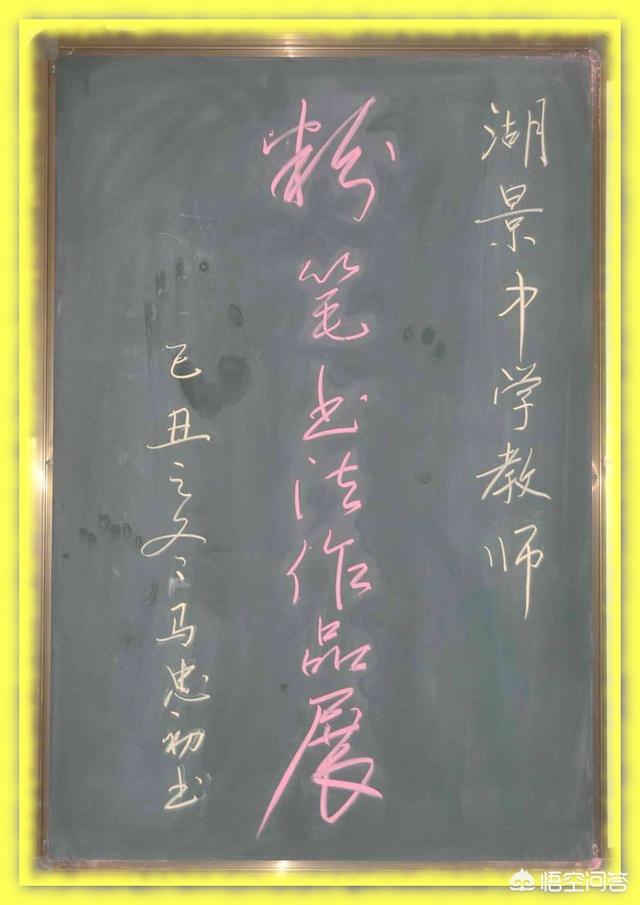 湖景中学教师
粉笔书法作品展
己丑之冬马忠初书
悟空问答